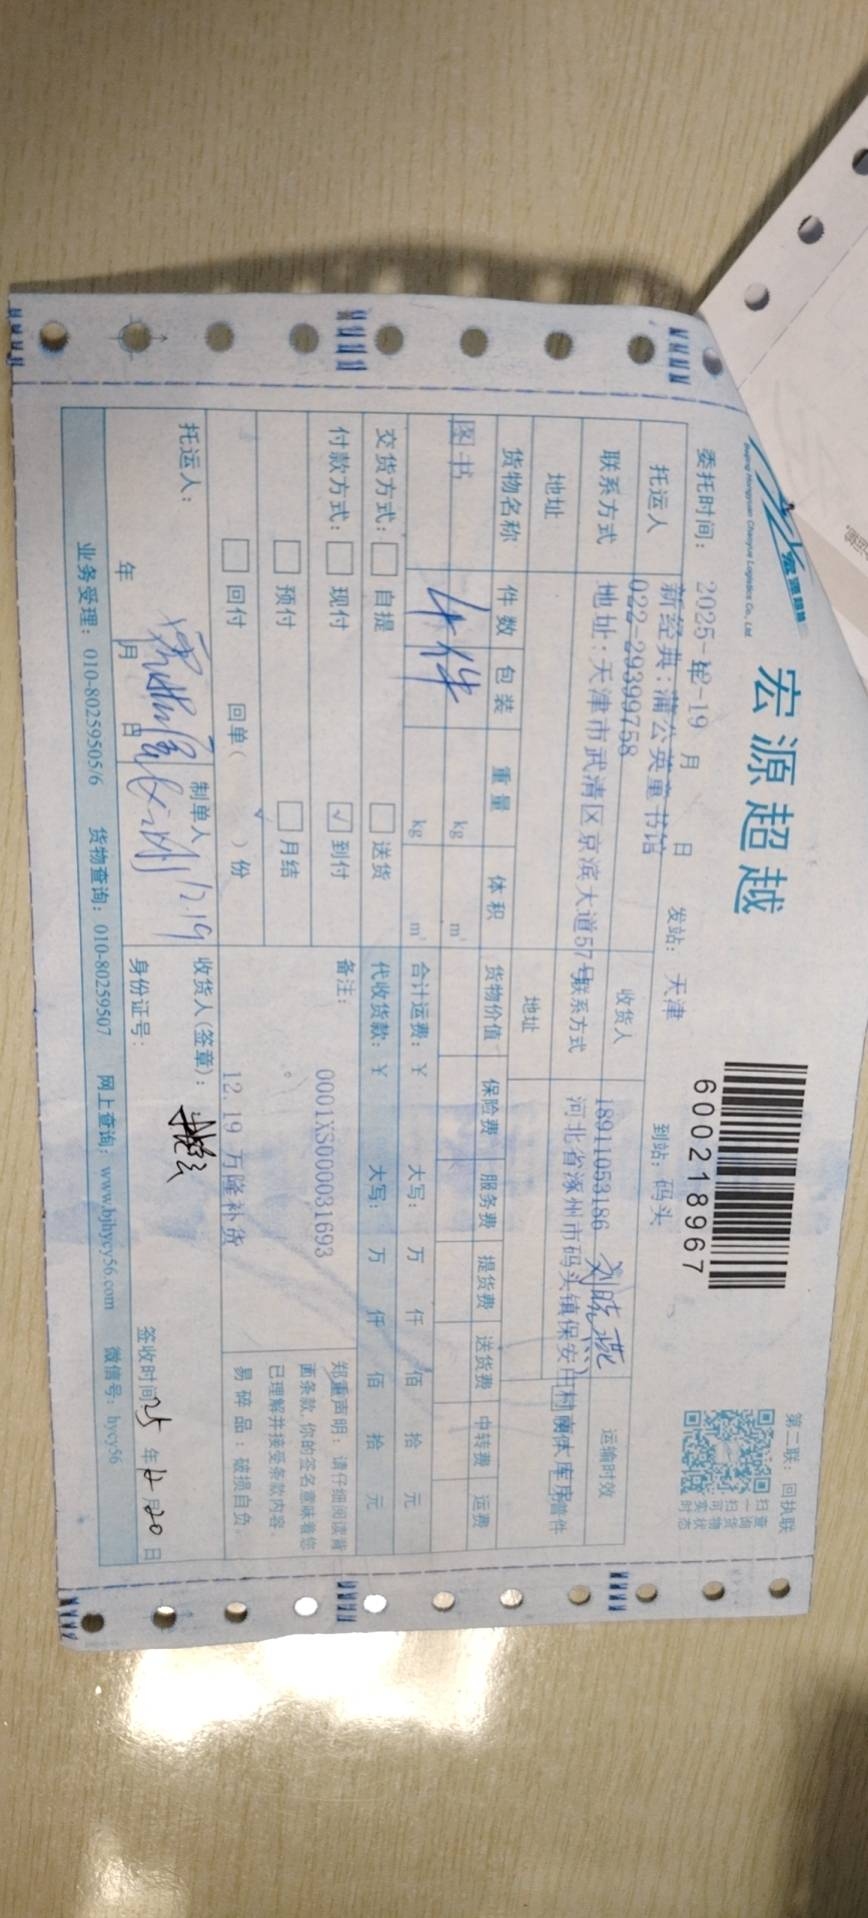 宏源超越
宏源超越
Beijing Hongyuan Chaoyue Logistics Co., Ltd
600218967
第二联：回执联
扫一扫可实时
查询货物状态
委托时间：2025-12-19 年 月 日 发站：天津 到站：码头
托运人 新经典：蒲公英童书馆 收货人 运输时效
联系方式 022-29399758 联系方式 18911053186 刘晓燕
地址 地址：天津市武清区京滨大道57号 地址 河北省涿州市码头镇保安庄村 普件
货物名称 件数 包装 重量 体积 货物价值 保险费 服务费 提货费 送货费 中转费 运费
图书 4件 kg m³
kg m³ 合计运费：¥ 大写： 万 仟 佰 拾 元
交货方式：□自提 □送货 代收货款：¥ 大写： 万 仟 佰 拾 元
付款方式：□现付 ☑到付 备注：
0001XS000031693
□预付 □月结
□回付 回单（ ）份
12.19 万隆补货
郑重声明：请仔细阅读背
面条款,你的签名意味着您
已理解并接受条款内容.
易碎品：破损自负.
托运人： 年 月 日
制单人 12.19
收货人(签章)：
身份证号：
签收时间 25 年 12 月 20 日
业务受理：010-80259505/6 货物查询：010-80259507 网上查询：www.bjhycy56.com 微信号：hycy56